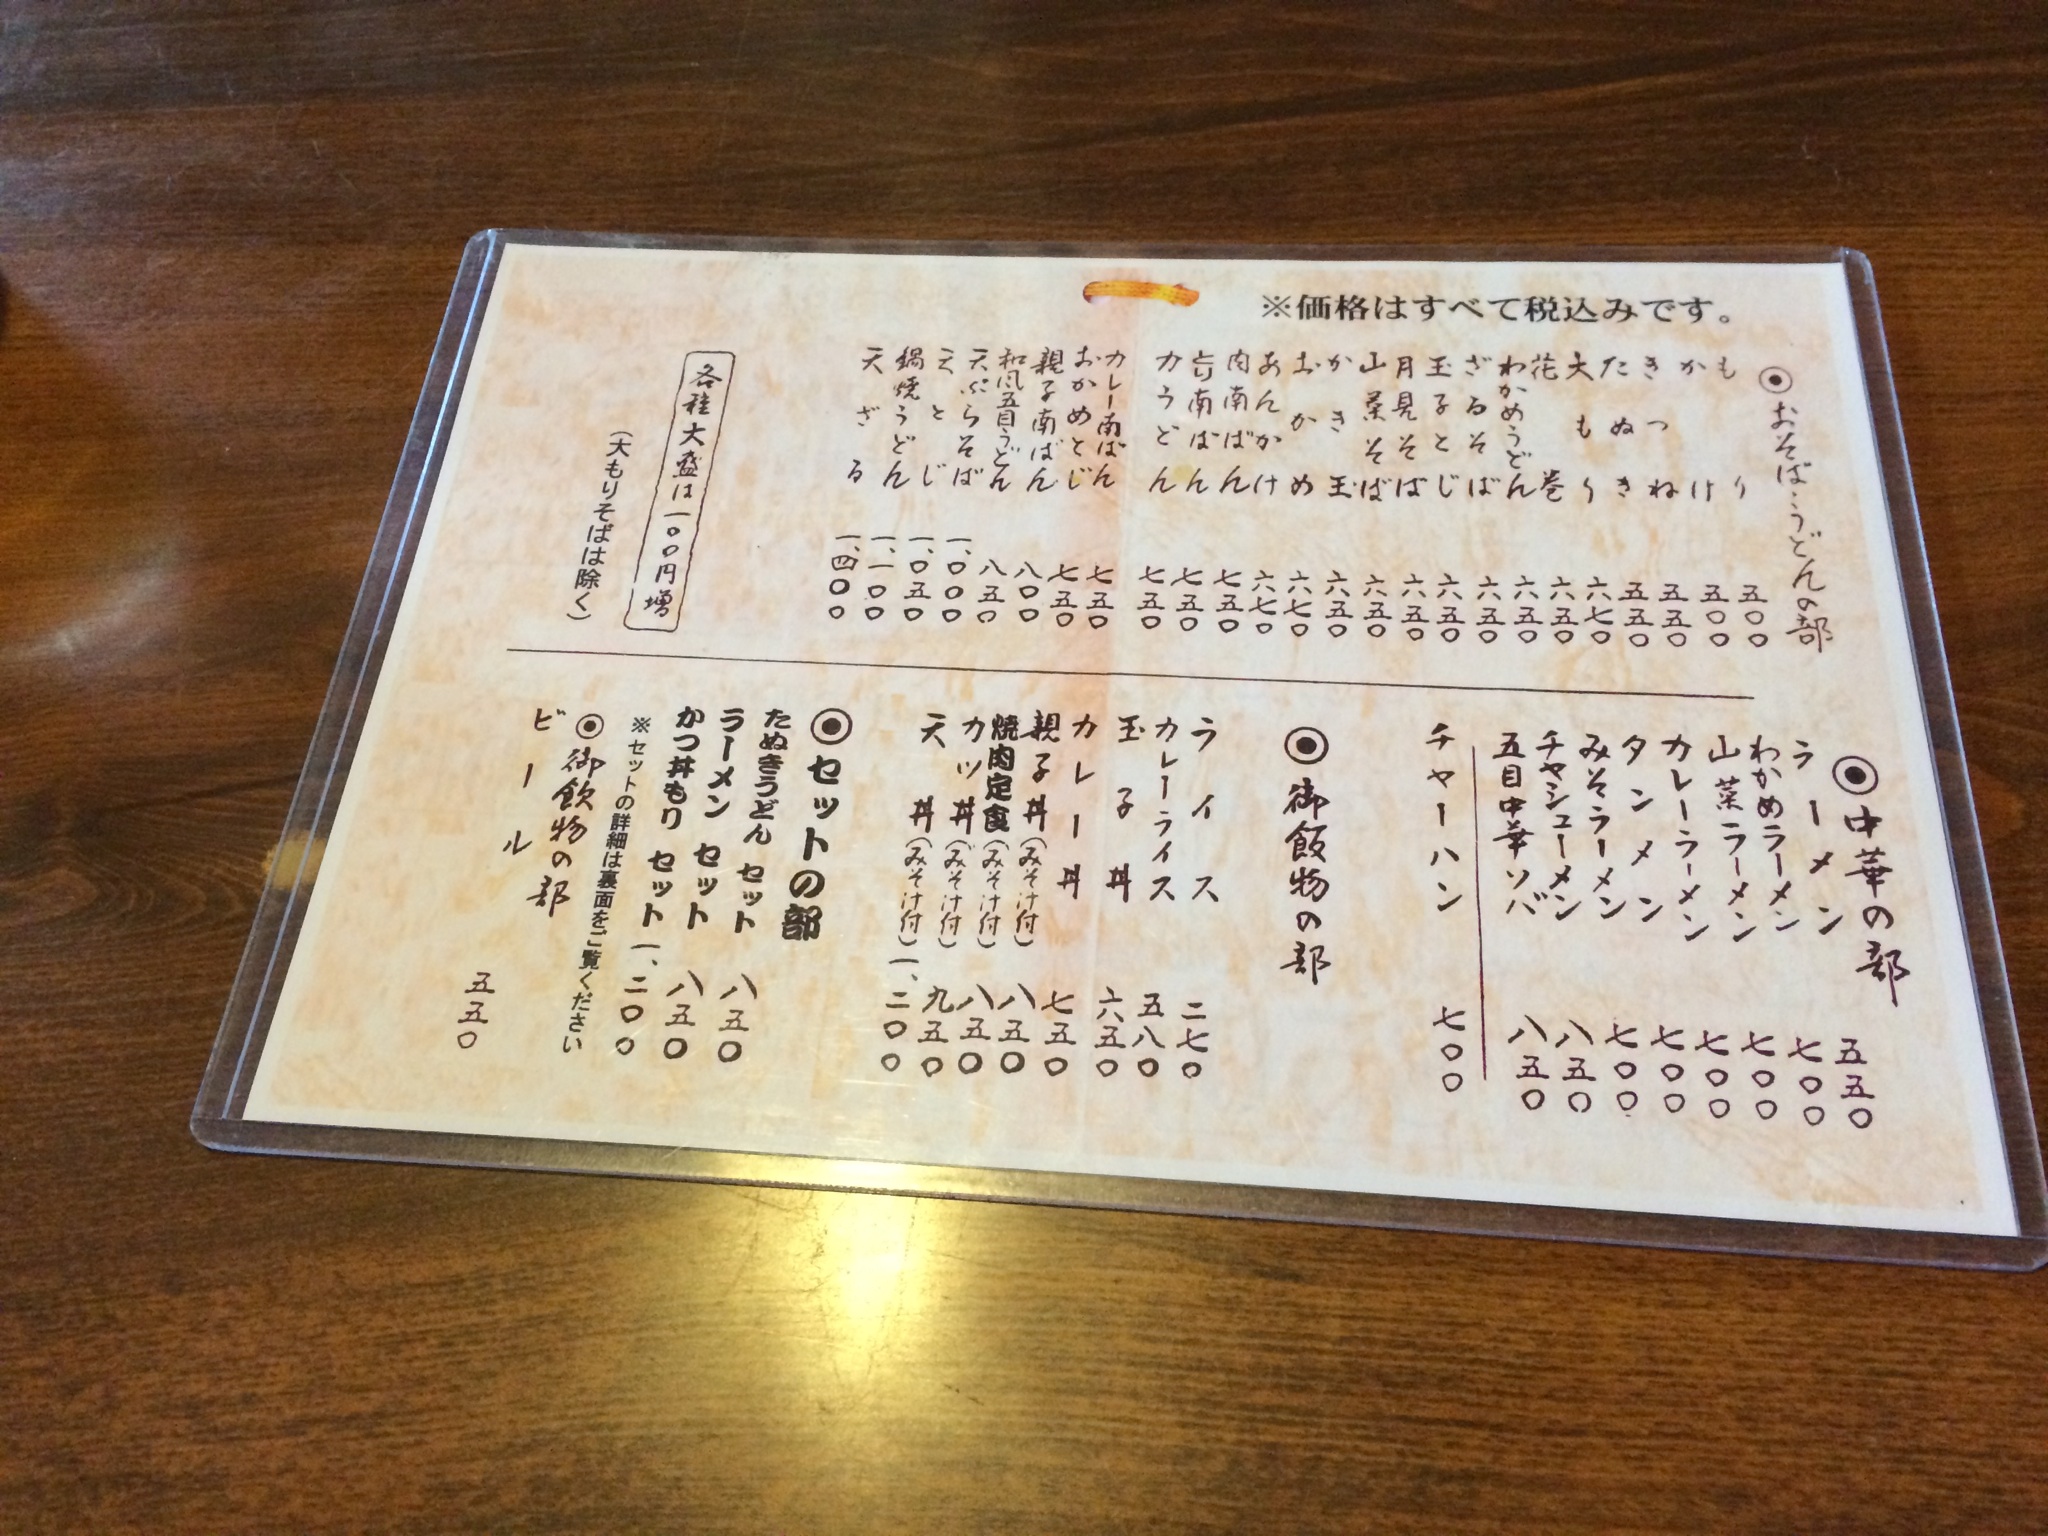 ※価格はすべて税込みです。
◉おそば・うどんの部
もり 五〇〇
かけ 五〇〇
きつね 五五〇
たぬき 五五〇
大もり 六七〇
花巻 六五〇
わかめうどん 六五〇
ざるそば 六五〇
玉子とじ 六五〇
月見そば 六五〇
山菜そば 六五〇
かき玉 六五〇
おかめ 六七〇
あんかけ 六七〇
肉南ばん 七五〇
南ばん 七五〇
力うどん 七五〇
カレー南ばん 七五〇
おかめとじ 七五〇
親子南ばん 八〇〇
和風五目うどん 八五〇
天ぷらそば 一、〇〇〇
天とじ 一、〇五〇
鍋焼うどん 一、一〇〇
天ざる 一、四〇〇
各種大盛は一〇〇円増
(大もりそばは除く)
◉中華の部
ラーメン 五五〇
わかめラーメン 七〇〇
山菜ラーメン 七〇〇
カレーラーメン 七〇〇
タンメン 七〇〇
みそラーメン 七〇〇
チャシューメン 八五〇
五目中華ソバ 八五〇
チャーハン 七〇〇
◉御飯物の部
ライス 二七〇
カレーライス 五八〇
玉子丼 六五〇
カレー丼 七五〇
親子丼(みそけ付) 八五〇
焼肉定食(みそけ付) 八五〇
カツ丼(みそけ付) 九五〇
天丼(みそけ付) 一、二〇〇
◉セットの部
たぬきうどん セット 八五〇
ラーメン セット 八五〇
かつ丼もり セット 一、二〇〇
※セットの詳細は裏面をご覧ください
◉御飲物の部
ビール 五五〇